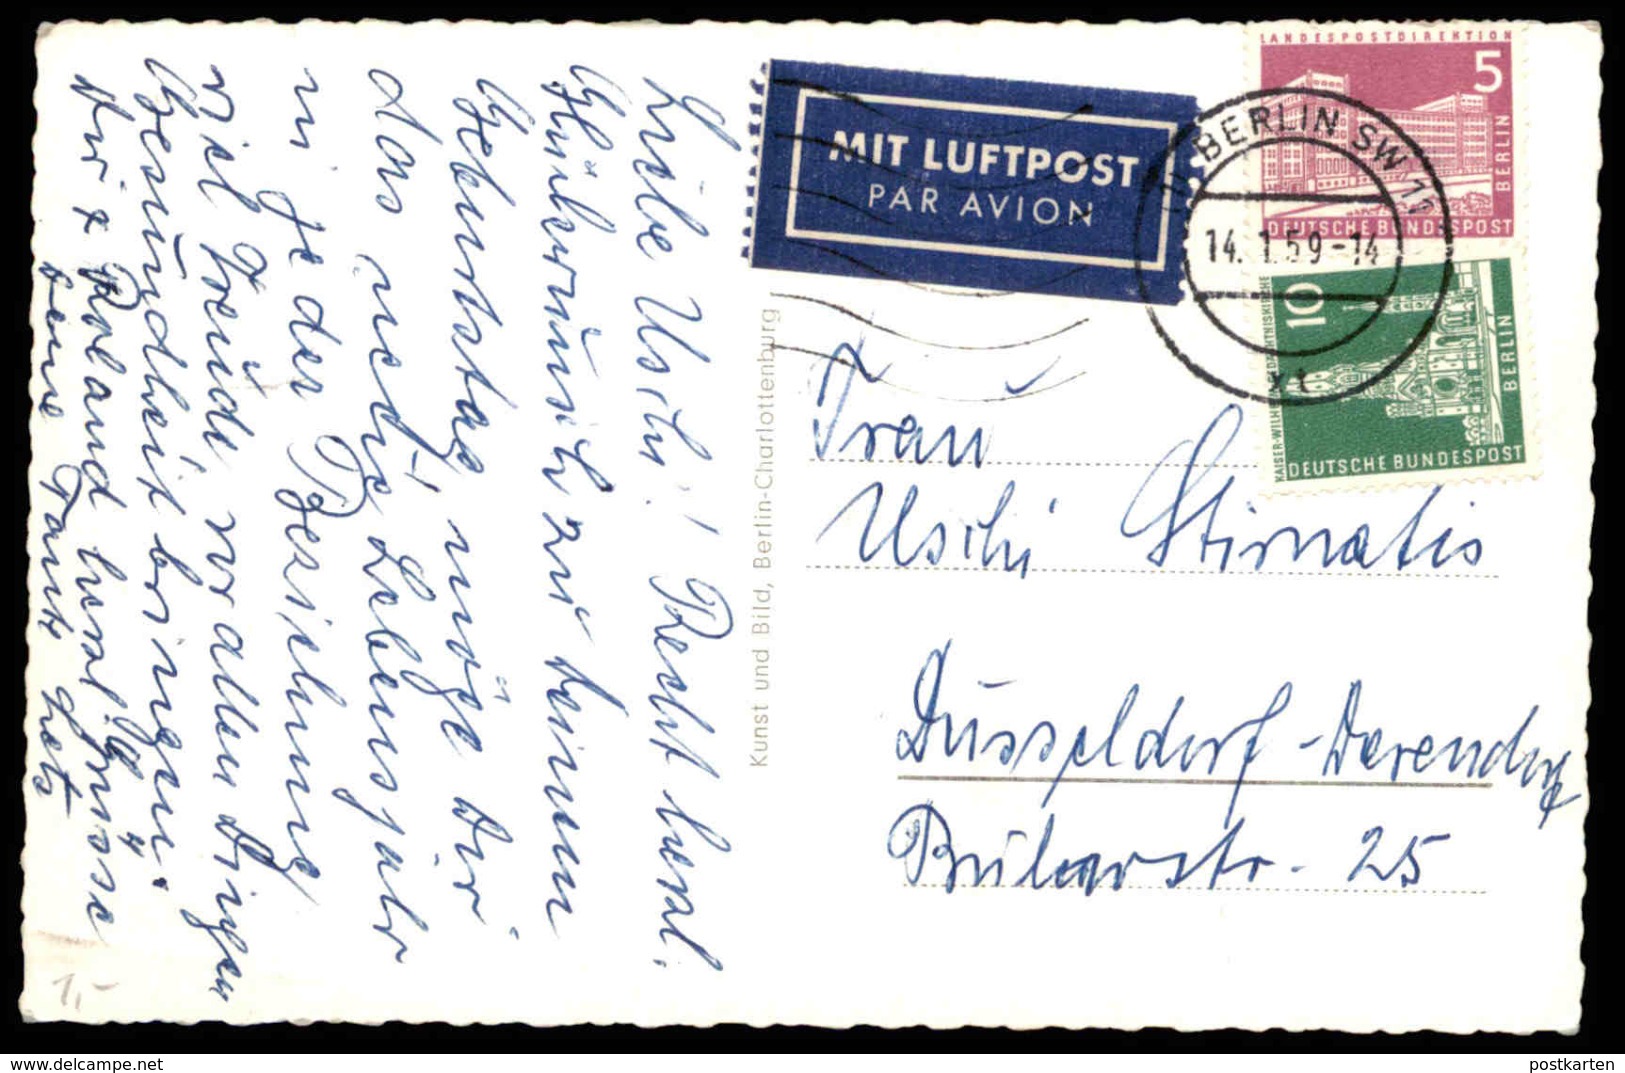 Liebe Uschi! Recht herzl.
Glückwunsch zu deinem
Geburtstag, möge Dir
das neue Lebensjahr
in jeder Beziehung
viel Freude, vor allen Dingen
Gesundheit bringen.
Dir & Roland herzl. Grüsse
Deine Tante
Kunst und Bild, Berlin-Charlottenburg
MIT LUFTPOST
PAR AVION
LANDESPOSTDIREKTION
5
BERLIN
DEUTSCHE BUNDESPOST
BERLIN SW 11
14. 1. 59 -14
xt
10
BERLIN
DEUTSCHE BUNDESPOST
Frau
Uschi Stirnatis
Düsseldorf-Derendorf
Bülowstr. 25
1,-
delcampe.net
postkarten